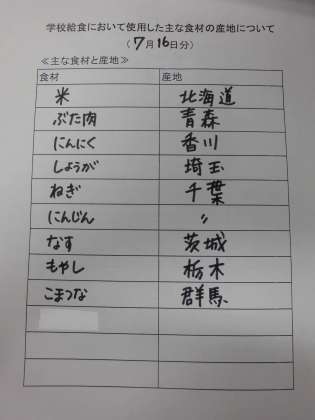 学校給食において使用した主な食材の産地について
(7月16日分)
≪主な食材と産地≫
食材 産地
米 北海道
ぶた肉 青森
にんにく 香川
しょうが 埼玉
ねぎ 千葉
にんじん 〃
なす 茨城
もやし 栃木
こまつな 群馬